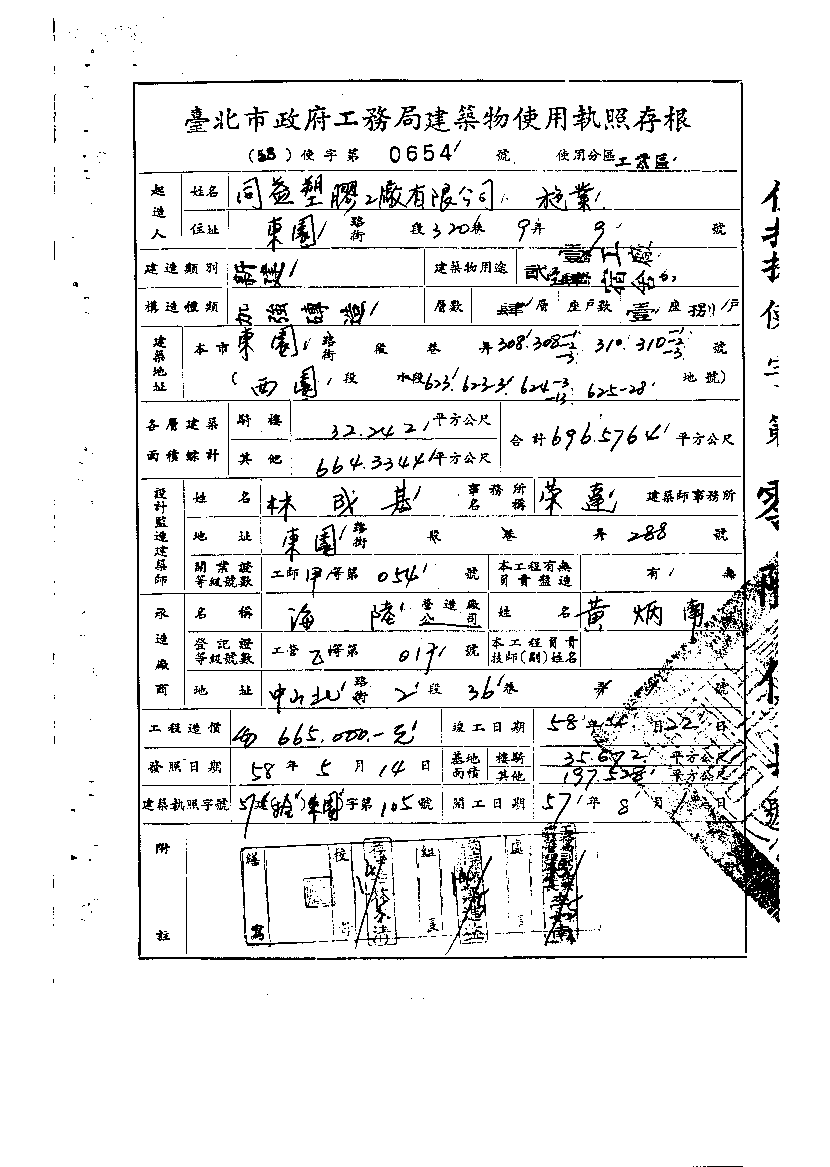 臺北市政府工務局建築物使用執照存根
(58)使字第 0654 號 使用分區 工業區
起造人 姓名 同益塑膠工廠有限公司
住址 東園 路街 段 320巷 9弄 9 號
建造類別 新建 建築物用途 壹工廠 宿舍
構造種類 加強磚造 層數 肆層 座戶數 壹座 捌戶
建築地址 本市 東園 路街 段 巷 弄 308.308-1-3 310.310-2-3 號
(西園 段 小段 623.623-3 624-3-13 625-28 地號)
各層建築面積綜計 騎樓 32.242 平方公尺 合計 696.5764 平方公尺
其他 664.3344 平方公尺
設計監造建築師 姓名 林成基 事務所名稱 榮達 建築師事務所
地址 東園 路街 段 巷 弄 288 號
開業證等級號數 工師甲等第 054 號 本工程有無負責監造 有 無
承造廠商 名稱 海陸 營造廠公司 姓名 黃炳南
登記證等級號數 工營乙等第 號 本工程負責技師(副)姓名
地址 中山北 路街 2段 36巷 弄 號
工程造價 665.000.-元 竣工日期 58年 月22日
發照日期 58年5月14日 基地面積 樓騎 35.692 平方公尺
其他 197.528 平方公尺
建築執照字號 57建 東園字第105號 開工日期 57年8月 日
附註 繕寫 校對 組主 處
使字第零陸